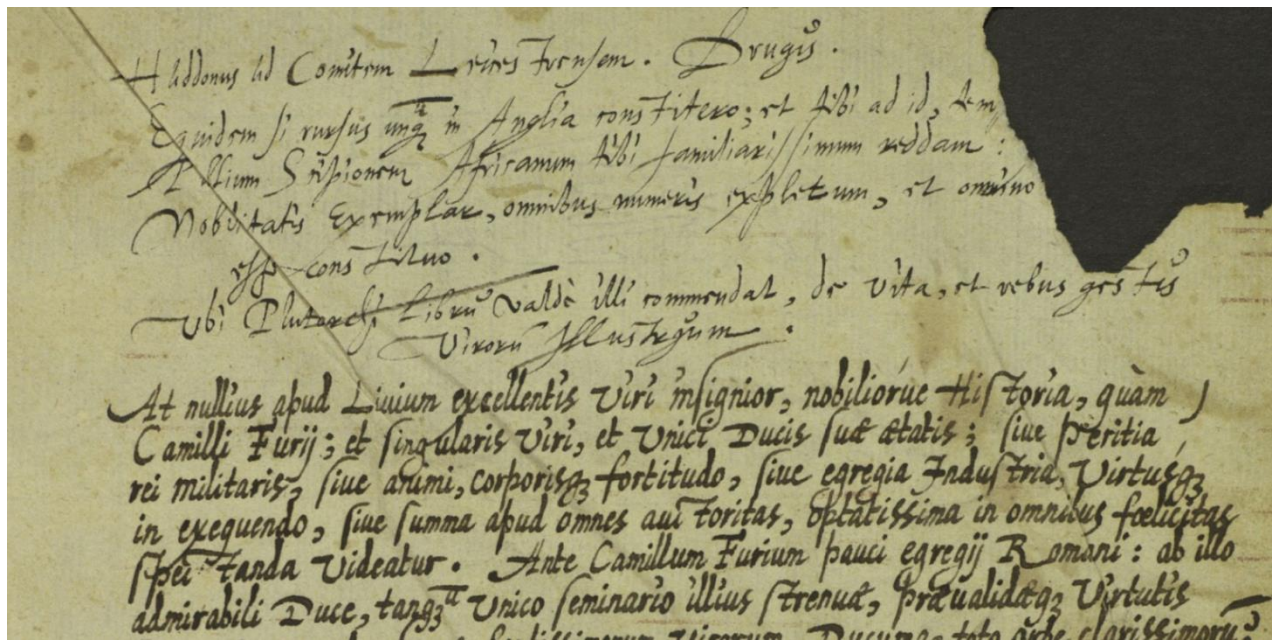 Haddonus ad Comitem Leicestrensem. Brugis.
Equidem si rursus unq̃ in Anglia constitero; et tibi ad id,
Scipionem Africanum tibi familiarissimum reddam:
Nobilitatis Exemplar, omnibus numeris expletum, et omnino
esse constituo.
Ubi Plutarchi librũ valdè illi commendat, de vita, et rebus gestis
Virorũ Illustrium.
At nullius apud Liuium excellentis Viri insignior, nobiliorúe Historia, quàm
Camilli Furij; et singularis Viri, et Unici Ducis suæ ætatis; siue Peritia
rei militaris, siue animi, corporisq; fortitudo, siue egregia Industria, Virtusq;
in exequendo, siue summa apud omnes auctoritas, optatissima in omnibus fœlicitas
spectanda Videatur. Ante Camillum Furium pauci egregij Romani: ab illo
admirabili Duce, tanq̃ Unico seminario illius strenuæ, præualidæq; Virtutis
Virorum, Ducumq; toto orbe clarissimorũ